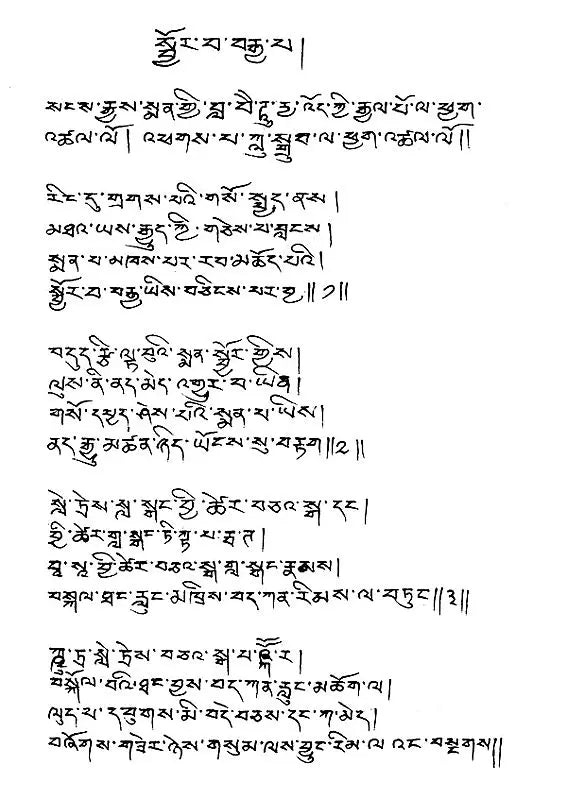 སྦྱོར་བ་བརྒྱ་པ།
སངས་རྒྱས་སྨན་གྱི་བླ་བཻ་ཌཱུརྱ་འོད་ཀྱི་རྒྱལ་པོ་ལ་ཕྱག་
འཚལ་ལོ། འཕགས་པ་ཀླུ་སྒྲུབ་ལ་ཕྱག་འཚལ་ལོ༎
རིང་དུ་གྲགས་པའི་གསོ་སྤྱད་ནས།
མཐའ་ཡས་རྒྱུད་ཀྱི་གཅེས་པ་བླངས།
སྨན་པ་མཁས་པར་རབ་མཆོད་པའི།
སྦྱོར་བ་བརྒྱ་ཡིས་བཅིངས་པར་བྱ༎ ༡༎
བདུད་རྩི་ལྟ་བུའི་སྨན་སྦྱོར་གྱིས།
ལུས་ནི་ནད་མེད་འགྱུར་བ་ཡིན།
གསོ་དཔྱད་ཤེས་པའི་སྨན་པ་ཡིས།
ནད་རྒྱུ་མཚན་ཉིད་ཡོངས་སུ་བརྟག༎༢༎
སླེ་ཏྲེས་གླ་སྒང་བྱི་ཚེར་བཅའ་སྒ་དང།
བྱི་ཚེར་གླ་སྒང་ཏིཀྟ་པརྤ་ཊ།
བྱི་ཚེར་བཅའ་སྒ་གླ་སྒང་རྣམས།
བསྐོལ་ཐང་རླུང་མཁྲིས་བད་ཀན་རིམས་ལ་བཏུང༎༣༎
སླེ་ཏྲེས་བཅའ་སྒ་
བསྐོལ་བའི་ཐང་གྱས་བད་ཀན་རླུང་མཆོག་ལ།
ལུད་པ་དབུགས་མི་བདེ་བཅས་དང་ཀ་མེད།
བཞོགས་གཟེར་ཉེས་གསུམ་ལས་བྱུང་རིམ་ལ་འང་བསྔགས༎